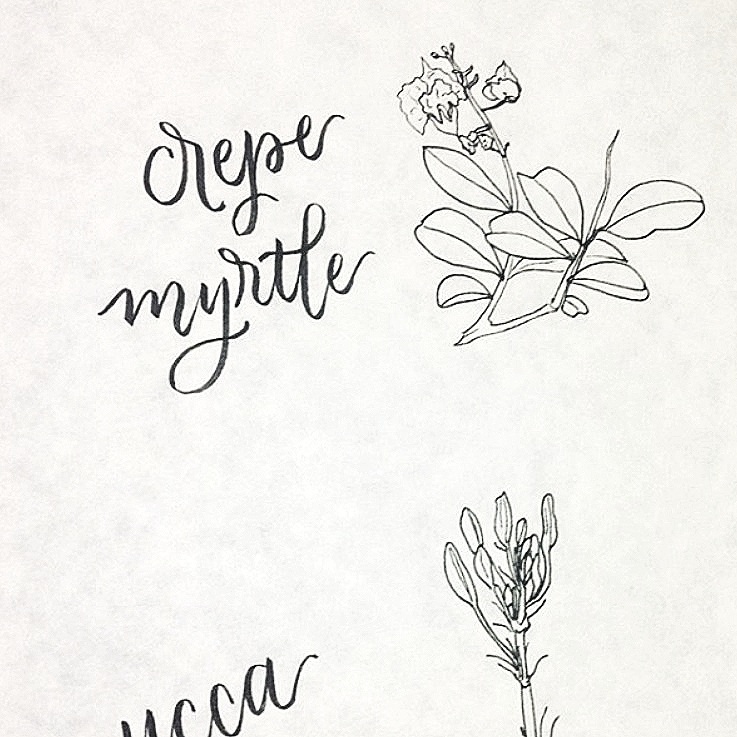 crepe
myrtle
yucca